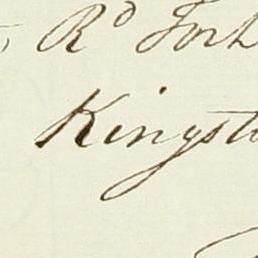 Rd For
Kingsto